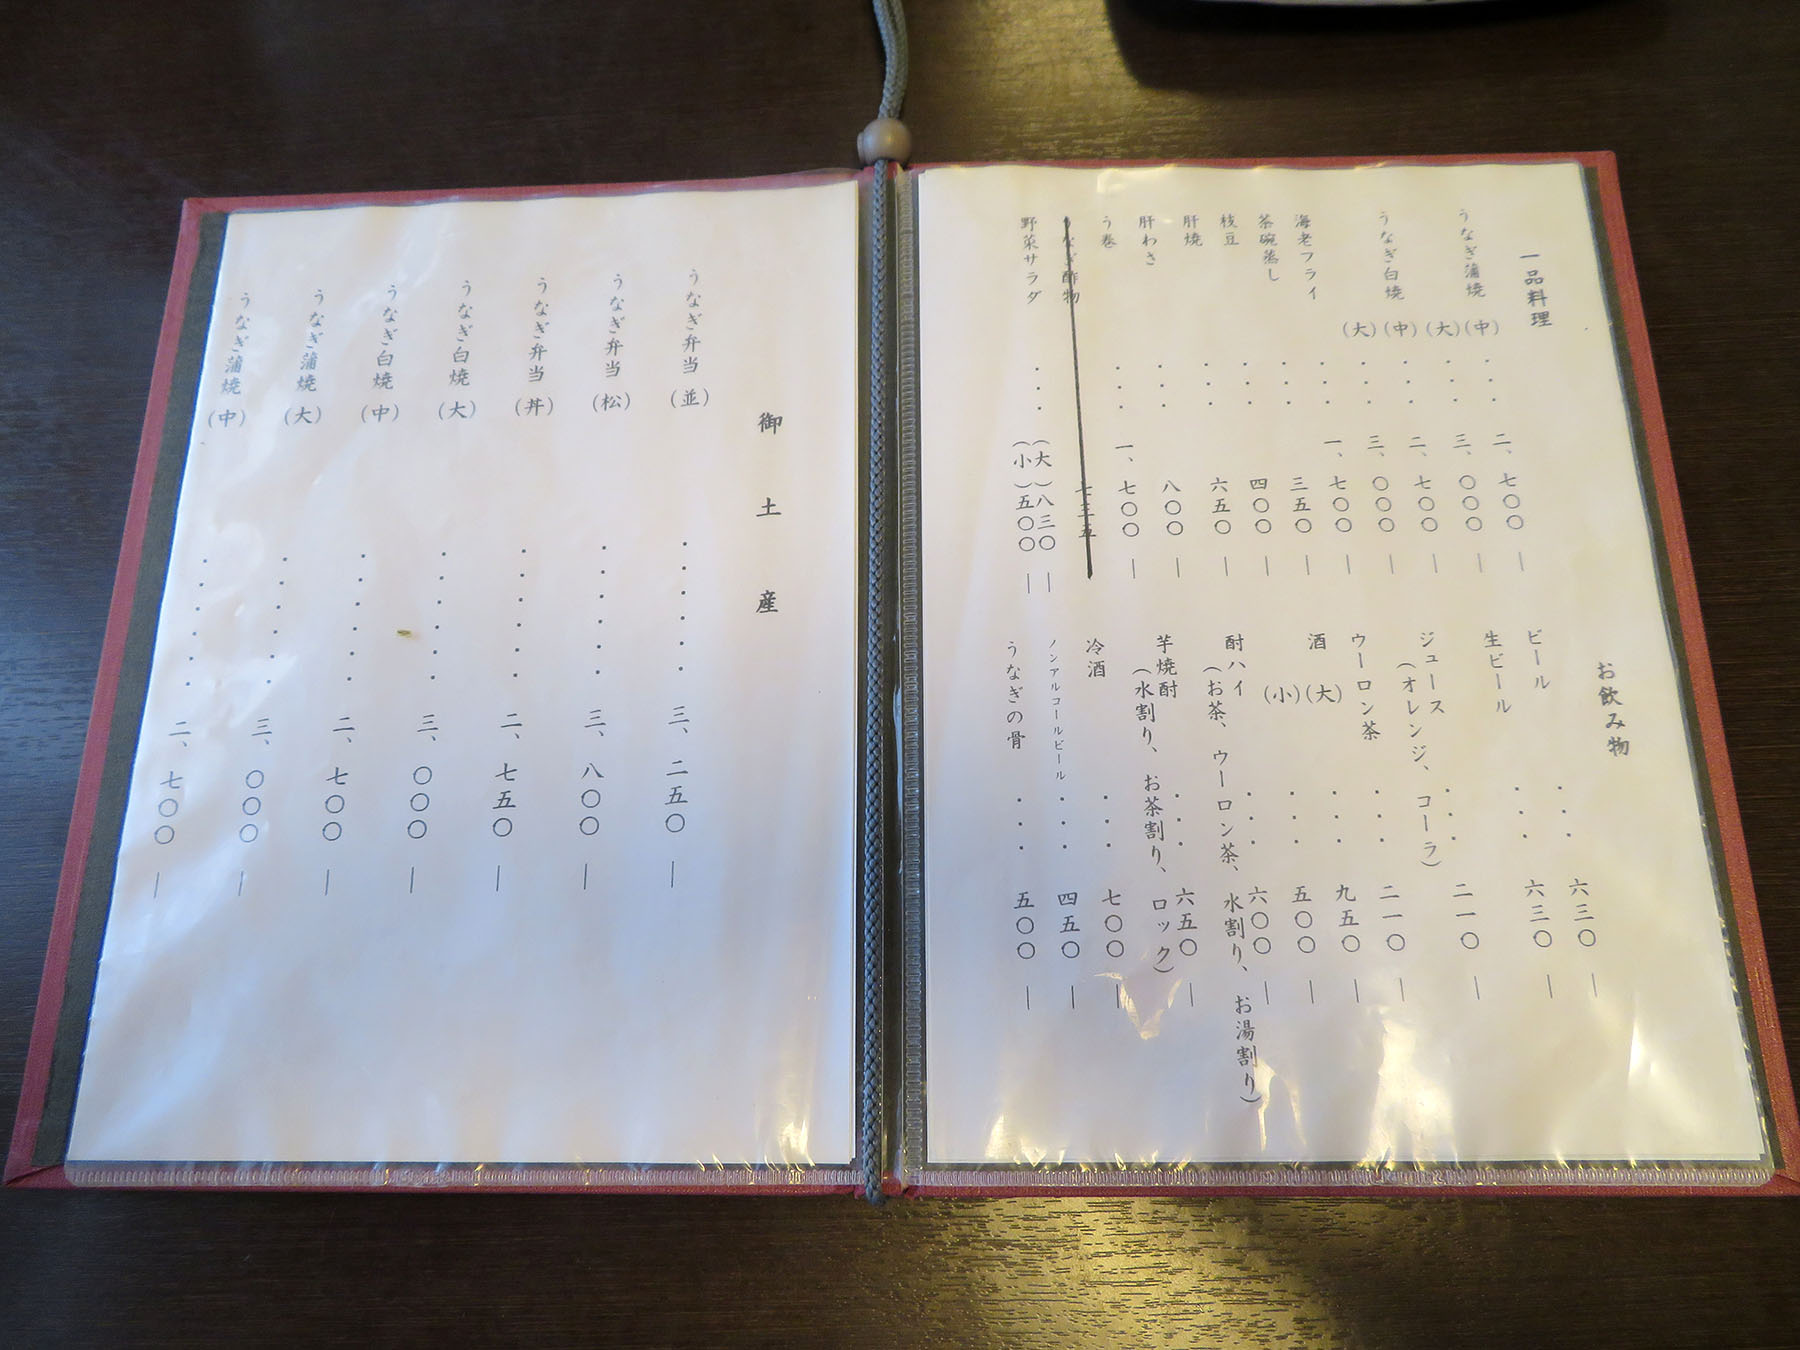 一品料理
うなぎ蒲焼 (中) ・・・ 二、七〇〇 ―
(大) ・・・ 三、〇〇〇 ―
うなぎ白焼 (中) ・・・ 二、七〇〇 ―
(大) ・・・ 三、〇〇〇 ―
海老フライ ・・・ 一、七〇〇 ―
茶碗蒸し ・・・ 三五〇 ―
枝豆 ・・・ 四〇〇 ―
肝焼 ・・・ 六五〇 ―
肝わさ ・・・ 八〇〇 ―
う巻 ・・・ 一、七〇〇 ―
うなぎ酢物 七三五
野菜サラダ ・・・ (大)八三〇 ―
(小)五〇〇 ―
お飲み物
ビール ・・・ 六三〇 ―
生ビール ・・・ 六三〇 ―
ジュース ・・・ 二一〇 ―
(オレンジ、コーラ)
ウーロン茶 ・・・ 二一〇 ―
酒 (大) ・・・ 九五〇 ―
(小) ・・・ 五〇〇 ―
酎ハイ ・・・ 六〇〇 ―
(お茶、ウーロン茶、水割り、お湯割り)
芋焼酎 ・・・ 六五〇 ―
(水割り、お茶割り、ロック)
冷酒 ・・・ 七〇〇 ―
ノンアルコールビール ・・・ 四五〇 ―
うなぎの骨 ・・・ 五〇〇 ―
御土産
うなぎ弁当 (並) ・・・・・・・ 三、二五〇 ―
うなぎ弁当 (松) ・・・・・・・ 三、八〇〇 ―
うなぎ弁当 (丼) ・・・・・・・ 二、七五〇 ―
うなぎ白焼 (大) ・・・・・・・ 三、〇〇〇 ―
うなぎ白焼 (中) ・・・・・・・ 二、七〇〇 ―
うなぎ蒲焼 (大) ・・・・・・・ 三、〇〇〇 ―
うなぎ蒲焼 (中) ・・・・・・・ 二、七〇〇 ―